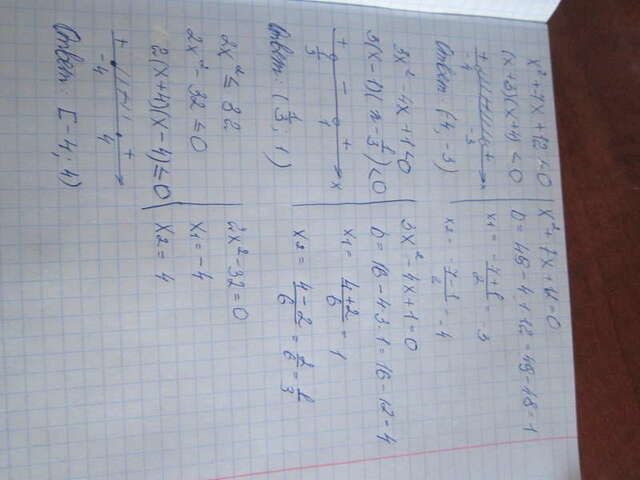 x² + 7x + 12 < 0
(x+3)(x+4) < 0
+ -4 -3 + x
Ответ: (-4; -3)
x² + 7x + 12 = 0
D = 49 - 4 · 12 = 49 - 48 = 1
x₁ = -7+1/2 = -3
x₂ = -7-1/2 = -4
3x² - 4x + 1 < 0
3(x-1)(x-1/3) < 0
+ 1/3 - 1 + x
Ответ: (1/3; 1)
3x² - 4x + 1 = 0
D = 16 - 4·3·1 = 16 - 12 = 4
x₁ = 4+2/6 = 1
x₂ = 4-2/6 = 2/6 = 1/3
2x² ≤ 32
2x² - 32 ≤ 0
2(x+4)(x-4) ≤ 0
+ -4 4 +
Ответ: [-4; 4)
2x² - 32 = 0
x₁ = -4
x₂ = 4